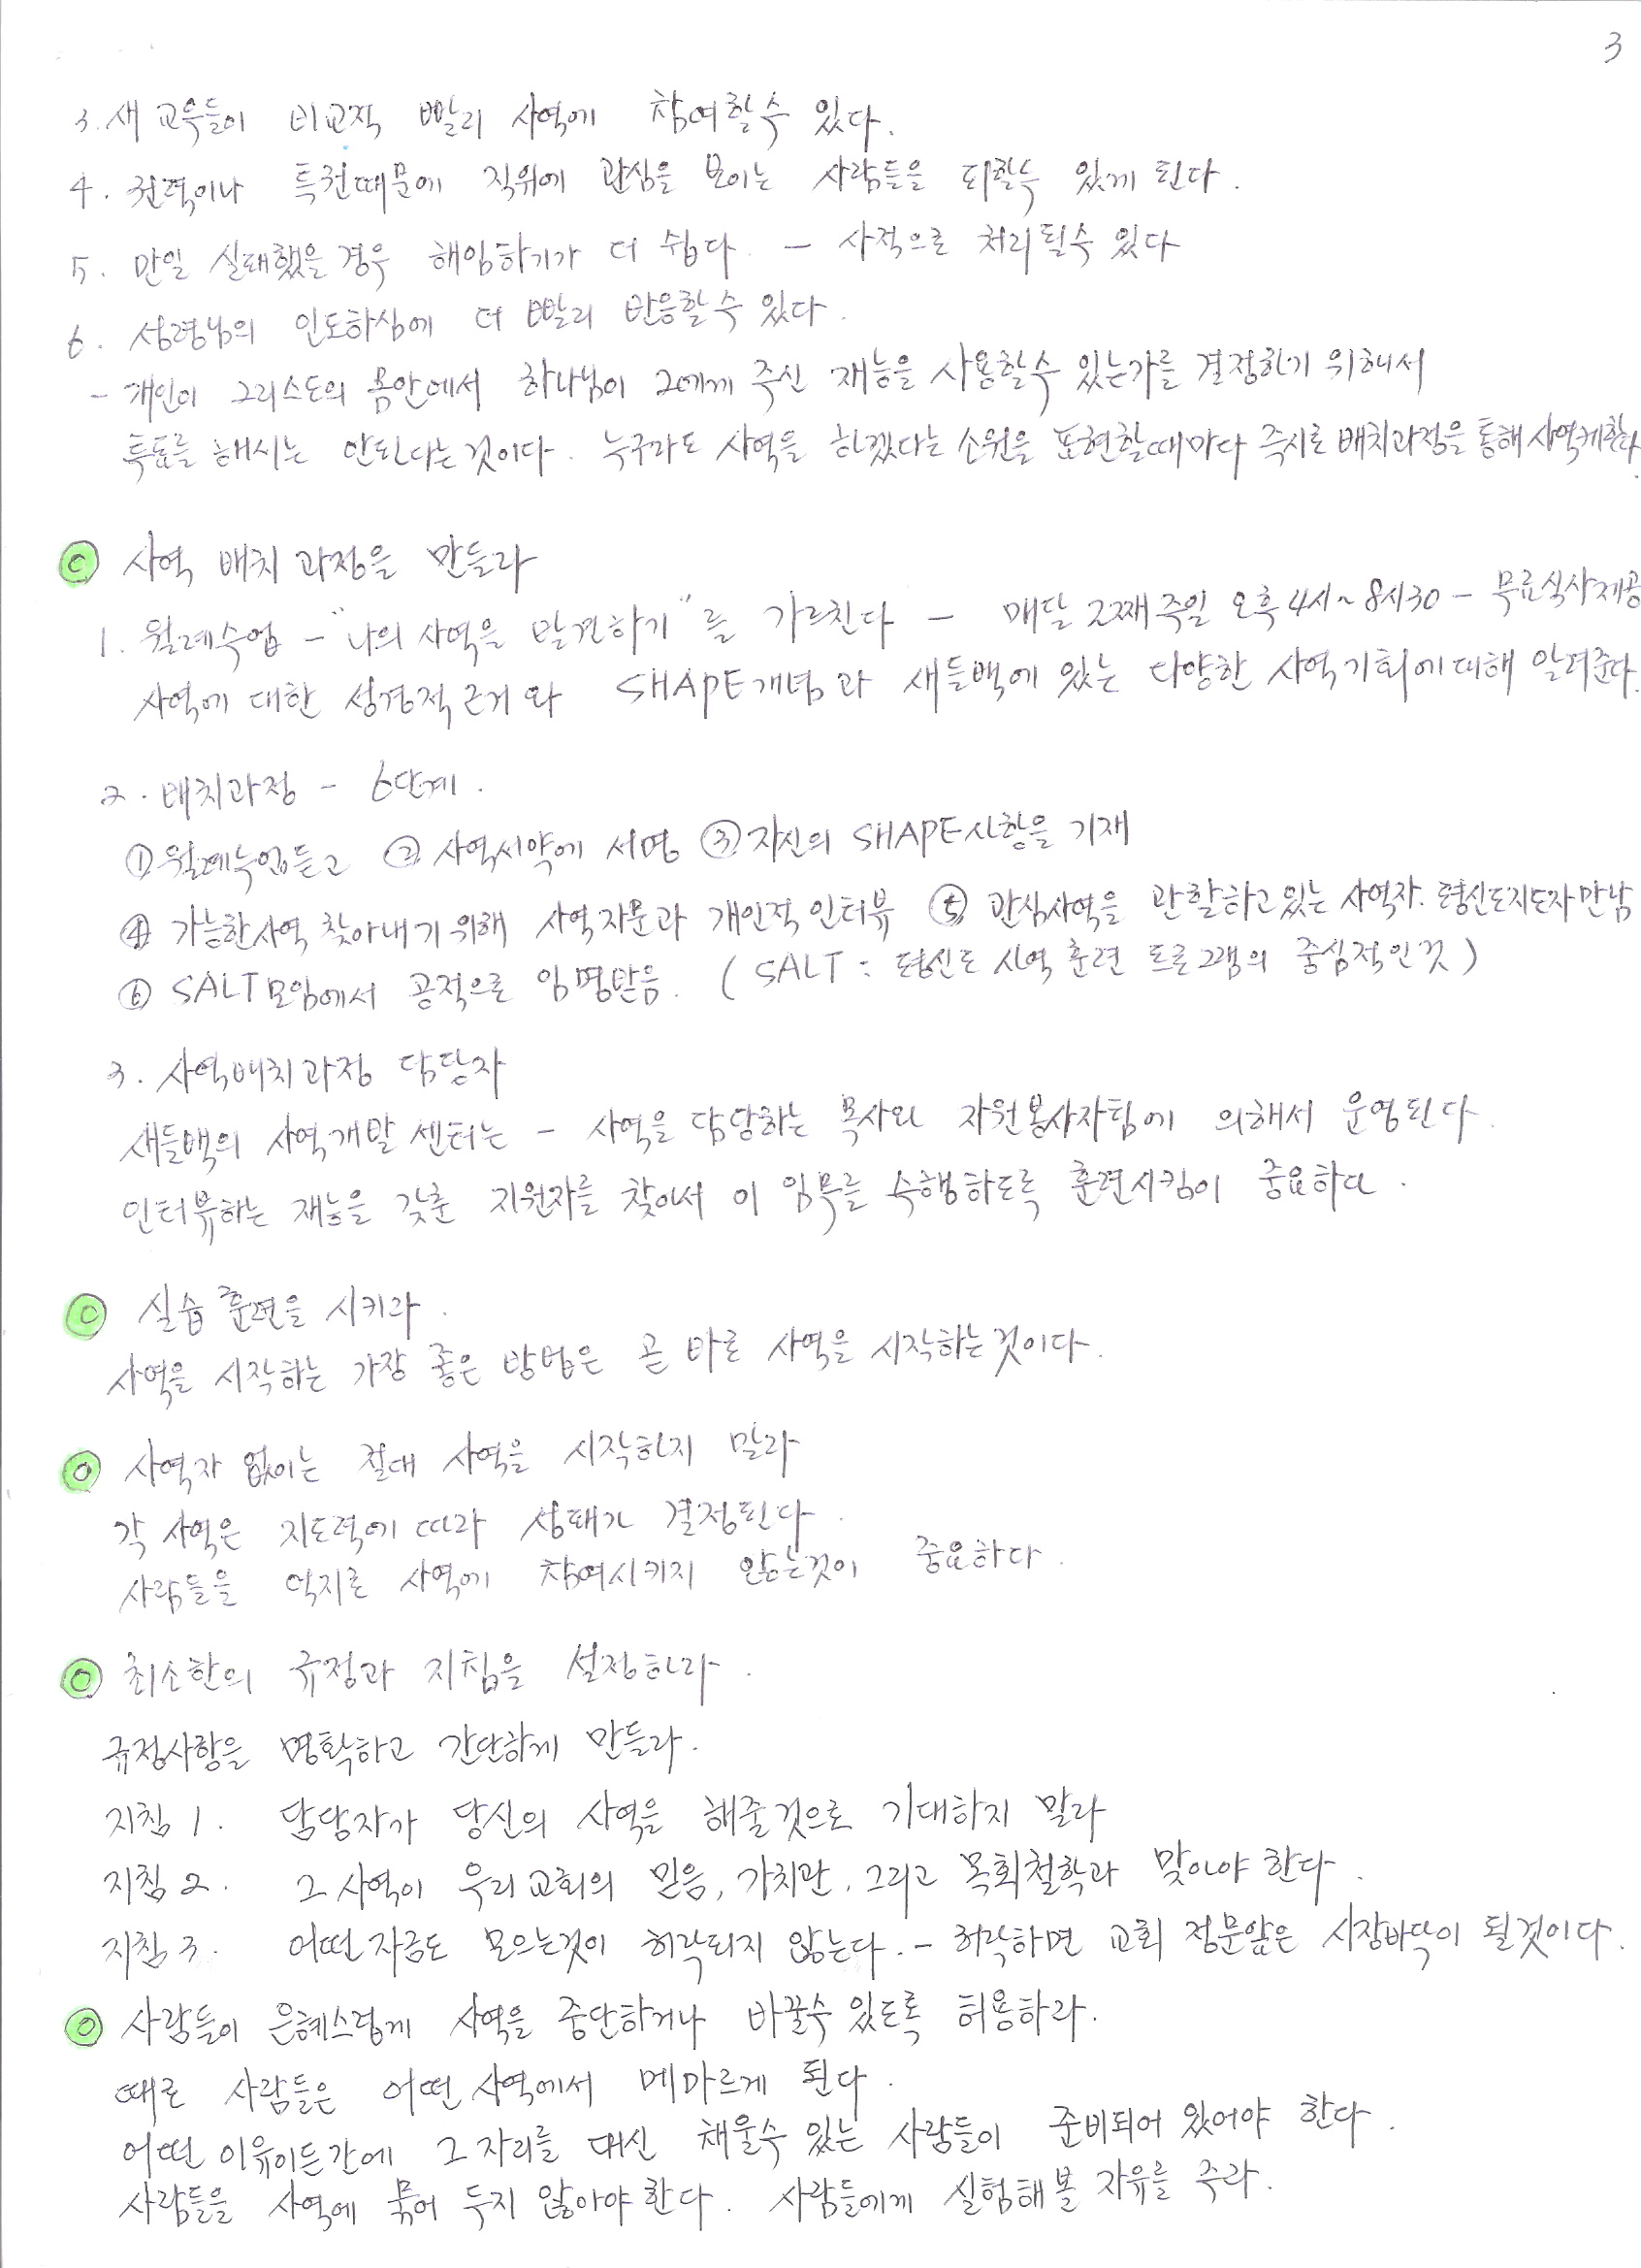 3
3. 새 교우들이 비교적 빨리 사역에 참여할수 있다.
4. 권력이나 특권때문에 직위에 관심을 보이는 사람들을 피할수 있게 된다.
5. 만일 실패했을 경우 해임하기가 더 쉽다 - 사적으로 처리될수 있다
6. 성령님의 인도하심에 더 빨리 반응할수 있다.
- 개인이 그리스도의 몸안에서 하나님이 그에게 주신 재능을 사용할수 있는가를 결정하기 위해서
투표를 해서는 안된다는것이다. 누구라도 사역을 하겠다는 소원을 표현할때마다 즉시로 배치과정을 통해 사역케한다.
◎ 사역 배치 과정을 만들라
1. 월례수업 - "나의 사역을 발견하기"를 가르친다 - 매달 2째주일 오후 4시~8시30 - 무료식사제공
사역에 대한 성경적 근거와 SHAPE개념과 새들백에 있는 다양한 사역기회에 대해 알려준다.
2. 배치과정 - 6단계.
① 월례수업듣고 ② 사역서약에 서명 ③ 자신의 SHAPE사항을 기재
④ 가능한사역 찾아내기 위해 사역자문과 개인적 인터뷰 ⑤ 관심사역을 관할하고 있는 사역자. 평신도지도자만남
⑥ SALT모임에서 공적으로 임명받음. (SALT : 평신도 사역 훈련 프로그램의 중심적인것)
3. 사역배치과정 담당자
새들백의 사역개발 센터는 - 사역을 담당하는 목사와 자원봉사자팀에 의해서 운영된다.
인터뷰하는 재능을 갖춘 지원자를 찾아서 이 임무를 수행하도록 훈련시킴이 중요하다.
◎ 실습 훈련을 시키라.
사역을 시작하는 가장 좋은 방법은 곧 바로 사역을 시작하는것이다.
◎ 사역자 없이는 절대 사역을 시작하지 말라
각 사역은 지도력에 따라 성패가 결정된다.
사람들을 억지로 사역에 참여시키지 않는것이 중요하다.
◎ 최소한의 규정과 지침을 설정하라.
규정사항을 명확하고 간단하게 만들라.
지침 1. 담당자가 당신의 사역을 해줄것으로 기대하지 말라
지침 2. 그 사역이 우리교회의 믿음, 가치관, 그리고 목회철학과 맞아야 한다.
지침 3. 어떤자금도 모으는것이 허락되지 않는다. - 허락하면 교회 정문앞은 시장바닥이 될것이다.
◎ 사람들이 은혜스럽게 사역을 중단하거나 바꿀수 있도록 허용하라.
때로 사람들은 어떤 사역에서 메마르게 된다.
어떤 이유이든간에 그 자리를 대신 채울수 있는 사람들이 준비되어 있어야 한다.
사람들을 사역에 묶어 두지 않아야 한다. 사람들에게 실험해볼 자유를 주라.